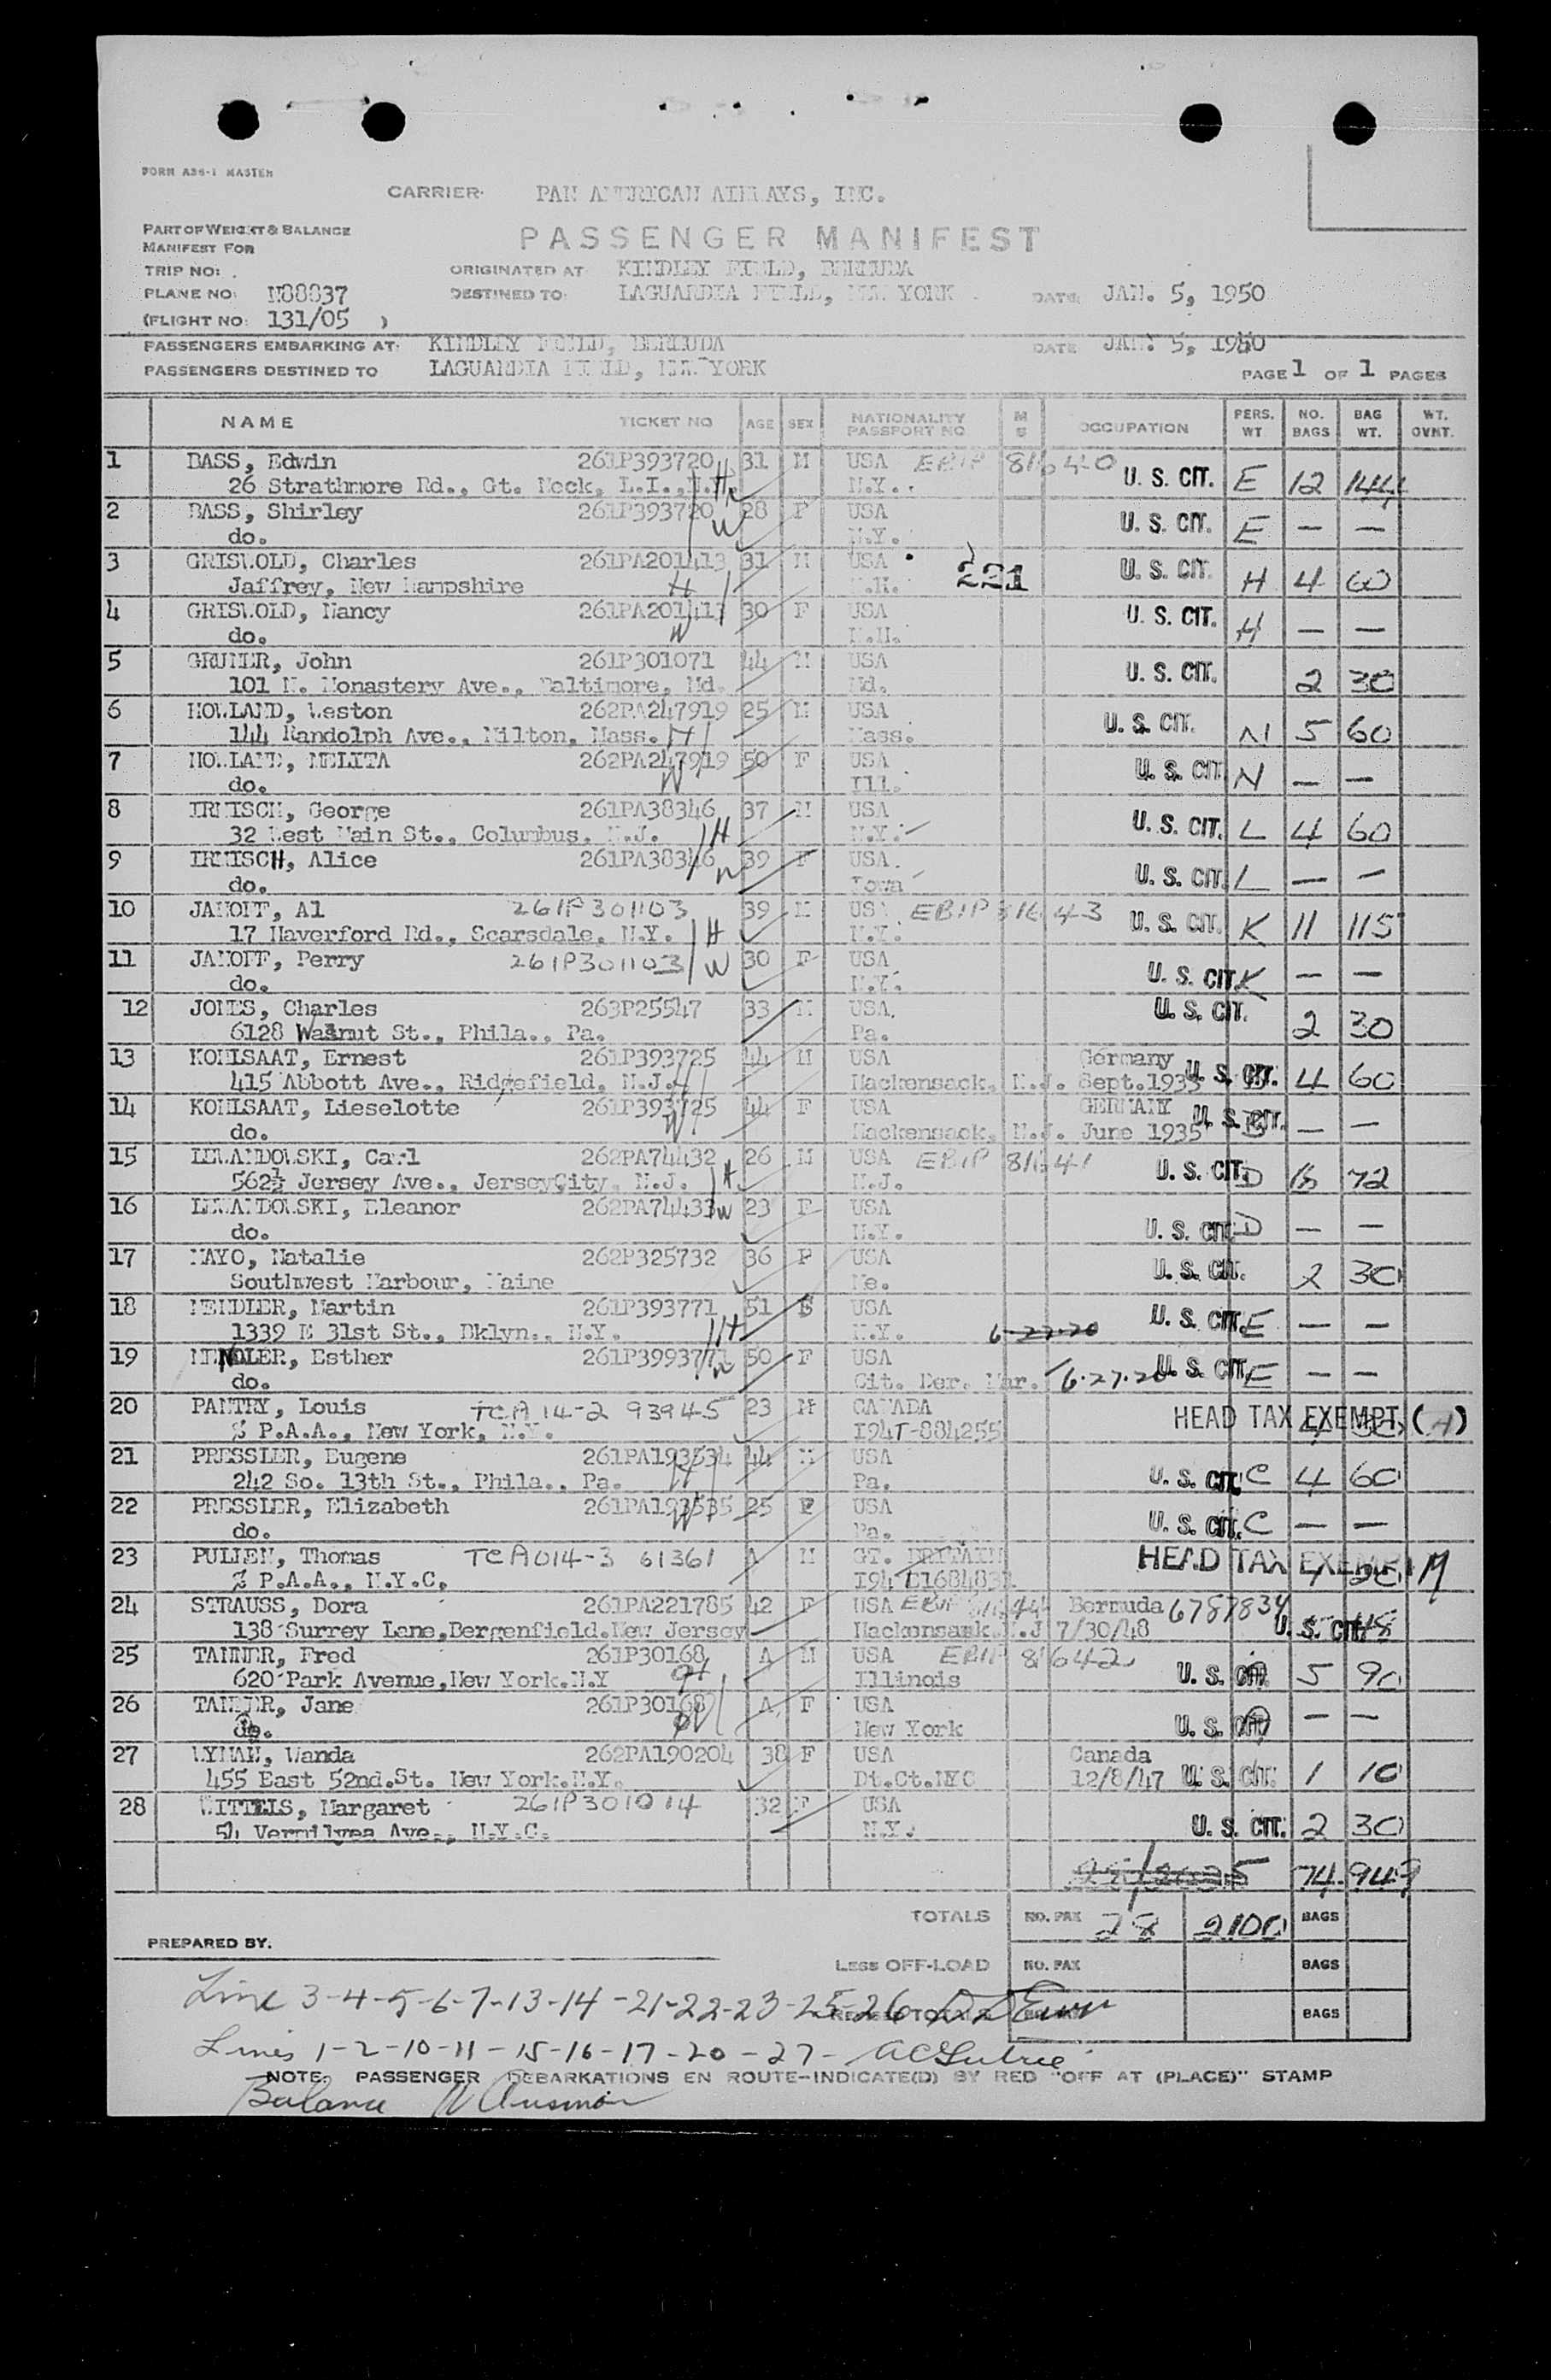 FORM A36-1 MASTER
CARRIER: PAN AMERICAN AIRWAYS, INC.
PART OF WEIGHT & BALANCE
MANIFEST FOR
PASSENGER MANIFEST
TRIP NO: ORIGINATED AT KINDLEY FIELD, BERMUDA
PLANE NO: N88837 DESTINED TO: LAGUARDIA FIELD, NEW YORK DATE: JAN. 5, 1950
(FLIGHT NO: 131/05 )
PASSENGERS EMBARKING AT: KINDLEY FIELD, BERMUDA DATE JAN. 5, 1950
PASSENGERS DESTINED TO LAGUARDIA FIELD, NEW YORK PAGE 1 OF 1 PAGES
NAME TICKET NO AGE SEX NATIONALITY PASSPORT NO M S OCCUPATION PERS. WT NO. BAGS BAG WT. WT. OVNT.
1 BASS, Edwin 261P393720 31 M USA EBIP 81640 U. S. CIT. E 12 144
26 Strathmore Rd., Gt. Neck, L.I., N.Y. H N.Y.
2 BASS, Shirley 261P393720 W 28 F USA U. S. CIT. E — —
do. N.Y.
3 GRISWOLD, Charles 261PA201413 31 M USA 221 U. S. CIT. H 4 60
Jaffrey, New Hampshire H N.H.
4 GRISWOLD, Nancy 261PA201413 30 F USA U. S. CIT. H — —
do. W N.H.
5 GRUNER, John 261P301071 44 M USA U. S. CIT. 2 30
101 N. Monastery Ave., Baltimore, Md. Md.
6 HOWLAND, Weston 262PA247919 25 M USA U. S. CIT. N 5 60
144 Randolph Ave., Milton, Mass. H Mass.
7 HOWLAND, MELITA 262PA247919 50 F USA U. S. CIT N — —
do. W Ill.
8 IRMISCH, George 261PA38346 37 M USA U. S. CIT. L 4 60
32 West Main St., Columbus, N.J. H N.Y.
9 IRMISCH, Alice 261PA38346 W 39 F USA. U. S. CIT. L — —
do. Iowa
10 JANOFF, Al 261P301103 39 M USA EBIP 81643 U. S. CIT. K 11 115
17 Haverford Rd., Scarsdale, N.Y. H N.Y.
11 JANOFF, Perry 261P301103 W 30 F USA U. S. CIT. K — —
do. N.Y.
12 JONES, Charles 263P25547 33 M USA. U. S. CIT. 2 30
6128 Walnut St., Phila., Pa. Pa.
13 KOHLSAAT, Ernest 261P393725 44 M USA Germany U. S. CIT. 4 60
415 Abbott Ave., Ridgefield, N.J. H Hackensack, N.J. Sept.1935
14 KOHLSAAT, Lieselotte 261P393725 44 F USA GERMANY U. S. CIT. B — —
do. W Hackensack, N.J. June 1935
15 LEWANDOWSKI, Carl 262PA74432 26 M USA EBIP 81641 U. S. CIT. D 72
562½ Jersey Ave., JerseyCity, N.J. H N.J.
16 LEWANDOWSKI, Eleanor 262PA74433 W 23 F USA U. S. CIT. D — —
do. N.Y.
17 MAYO, Natalie 262P325732 36 F USA U. S. CIT. 2 30
Southwest Harbour, Maine Me.
18 MENDLER, Martin 261P393771 51 USA U. S. CIT. E — —
1339 E 31st St., Bklyn., N.Y. H N.Y. 6-27-20
19 MENDLER, Esther 261P3993771 W 50 F USA U. S. CIT. E — —
do. Cit. Der. Mar. 6-27-20
20 PANTRY, Louis TCA 14-2 93945 23 M CANADA HEAD TAX EXEMPT (A)
% P.A.A., New York, N.Y. I94T-884255
21 PRESSLER, Eugene 261PA193534 44 M USA U. S. CIT. C 4 60
242 So. 13th St., Phila., Pa. H Pa.
22 PRESSLER, Elizabeth 261PA193535 25 F USA U. S. CIT. C — —
do. W Pa.
23 PULLEN, Thomas TCA014-3 61361 A M GT. BRITAIN HEAD TAX EXEMPT M
% P.A.A., N.Y.C.
24 STRAUSS, Dora 261PA221785 42 F USA EBIP 81644 Bermuda 6787834 U. S. CIT.
138 Surrey Lane, Bergenfield. New Jersey Hackensack N.J 7/30/48
25 TANNER, Fred 261P30168 A M USA EBIP 81642 U. S. CIT. 5 90
620 Park Avenue, New York. N.Y H Illinois
26 TANNER, Jane 261P30168 A F USA U. S. CIT. — —
do. W New York
27 WYMAN, Wanda 262PA190204 38 F USA Canada U. S. CIT. 1 10
455 East 52nd. St. New York. N.Y. Dt.Ct.NYC 12/8/47
28 WITTELS, Margaret 261P301014 32 F USA U. S. CIT. 2 30
54 Vermilyea Ave., N.Y.C. N.Y.
74 949
TOTALS NO. PAX 28 2100 BAGS
PREPARED BY.
LESS OFF-LOAD NO. PAX BAGS
Line 3-4-5-6-7-13-14-21-22-23-25-26 BAGS
Lines 1-2-10-11-15-16-17-20-27-
NOTE: PASSENGER DEBARKATIONS EN ROUTE-INDICATE(D) BY RED "OFF AT (PLACE)" STAMP
Balance